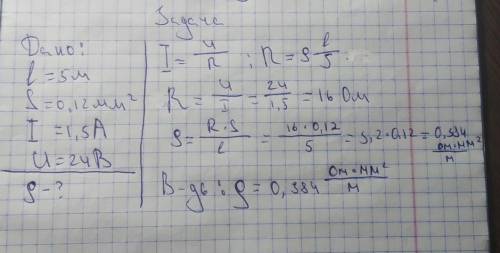 Задача
Дано:
l = 5 м
S = 0,12 мм²
I = 1,5 А
U = 24 В
ρ - ?
I = U/R ; R = ρ l/S.
R = U/I = 24/1,5 = 16 Ом
ρ = R·S/l = 16·0,12/5 = 3,2·0,12 = 0,384 Ом·мм²/м
В-дь: ρ = 0,384 Ом·мм²/м